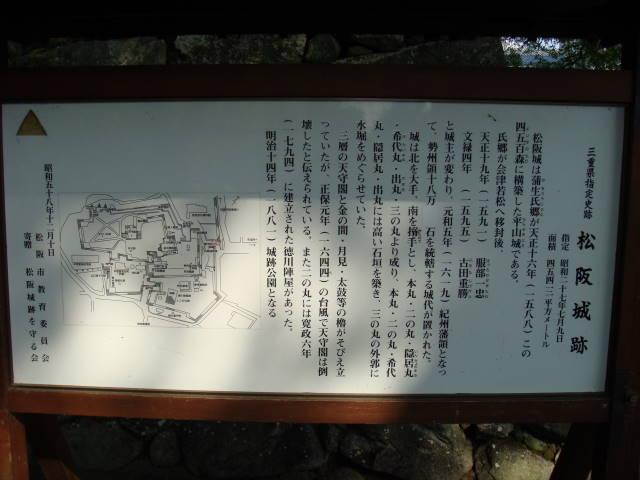 三重県指定史跡
松阪城跡
指定 昭和二十七年七月九日
面積 四五四二二平方メートル
松阪城は蒲生氏郷が天正十六年(一五八八)この
四五百森に構築した平山城である。
氏郷が会津若松へ移封後、
天正十九年(一五九一) 服部一忠
文禄四年 (一五九五) 古田重勝
と城主が変わり、元和五年(一六一九)紀州藩領となっ
て、勢州領十八万 石を統轄する城代が置かれた。
城は北を大手、南を搦手とし、本丸・二の丸・隠居丸
・希代丸・出丸・三の丸より成り、本丸・二の丸・希代
丸・隠居丸・出丸には高い石垣を築き、三の丸の外郭に
水堀をめぐらせていた。
三層の天守閣と金の間・月見・太鼓等の櫓がそびえ立
っていたが、正保元年(一六四四)の台風で天守閣は倒
壊したと伝えられている。また二の丸には寛政六年
(一七九四)に建立された徳川陣屋があった。
明治十四年(一八八一)城跡公園となる
昭和五十八年十二月十日
松阪市教育委員会
寄贈 松阪城跡を守る会